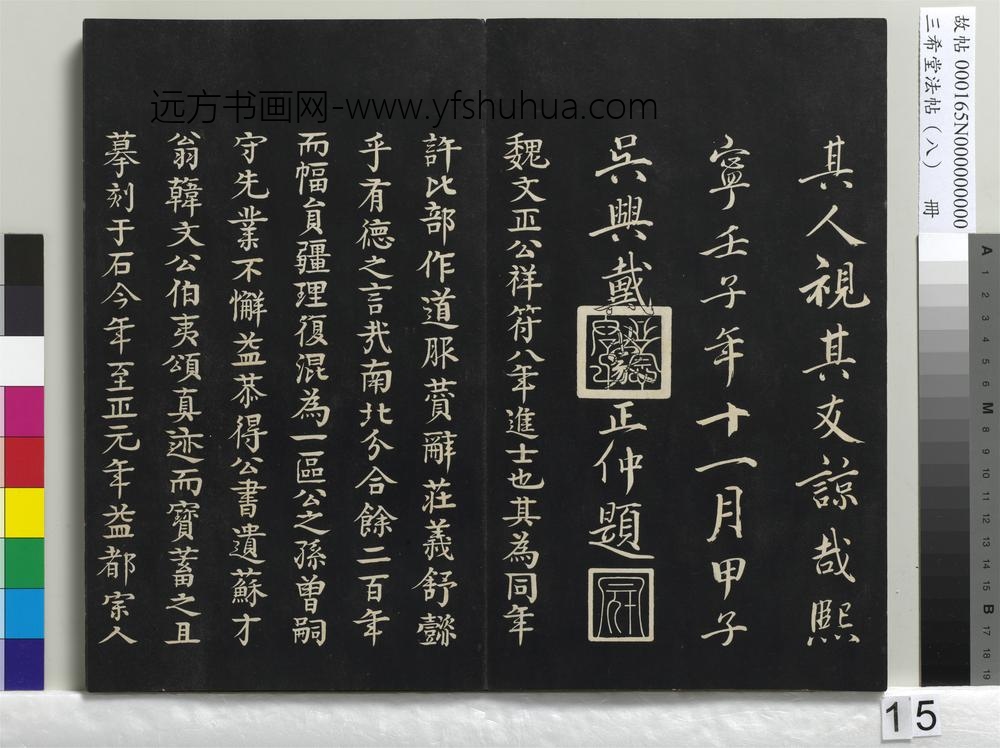 其人視其友諒哉熙
寧壬子年十一月甲子
吳興戴
正仲題
魏文正公祥符八年進士也其為同年
許比部作道服賛辭莊義舒懿
乎有德之言哉南北分合餘二百年
而幅員疆理復混為一區公之孫曽嗣
守先業不懈益恭得公書遺蘇才
翁韓文公伯夷頌真迹而寳蓄之且
摹刻于石今年至正元年益都宗人
远方书画网-www.yfshuhua.com
故帖 000165N000000000
三希堂法帖（八） 冊
A 1 2 3 4 5 6 M 8 9 10 11 12 13 14 15 B 17 18 19
15